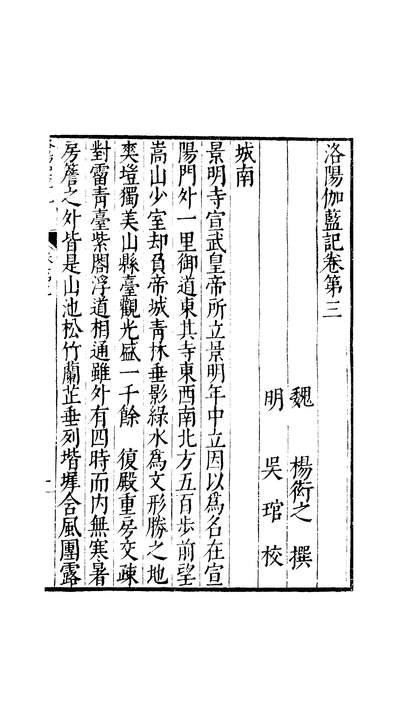 洛陽伽藍記卷第三
魏 楊衒之 撰
明 吳琯 校
城南
景明寺宣武皇帝所立景明年中立因以為名在宣
陽門外一里御道東其寺東西南北方五百步前望
嵩山少室却負帝城青林垂影綠水為文形勝之地
爽塏獨美山縣臺觀光盛一千餘 復殿重房交疎
對霤青臺紫閣浮道相通雖外有四時而內無寒暑
房簷之外皆是山池松竹蘭芷垂列堦墀含風團露